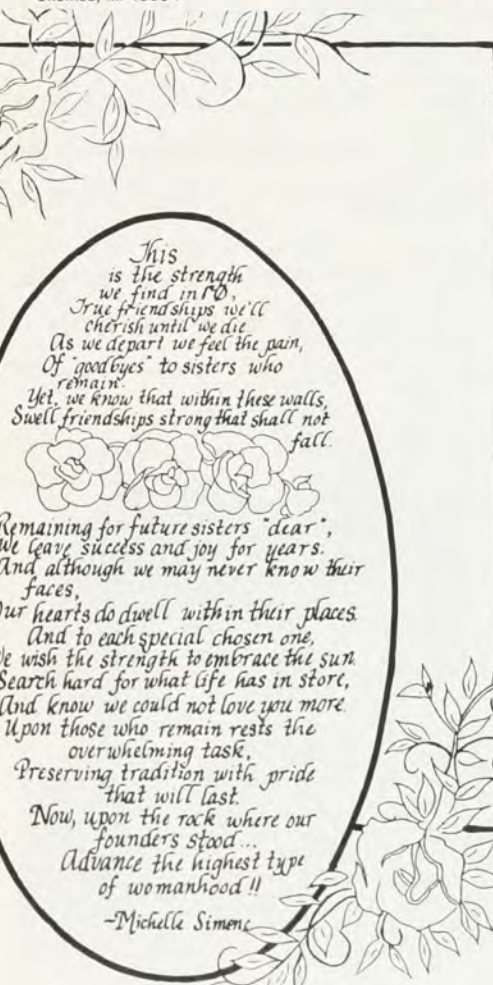 This
is the strength
we find in ΓØ,
True friendships we'll
cherish until we die.
As we depart we feel the pain,
Of "goodbyes" to sisters who
remain.
Yet, we know that within these walls,
Swell friendships strong that shall not
fall.
Remaining for future sisters "dear",
We leave success and joy for years.
And although we may never know their
faces,
Our hearts do dwell within their places.
And to each special chosen one,
We wish the strength to embrace the sun.
Search hard for what life has in store,
And know we could not love you more.
Upon those who remain rests the
overwhelming task,
Preserving tradition with pride
that will last.
Now, upon the rock where our
founders stood...
Advance the highest type
of womanhood!!
~Michelle